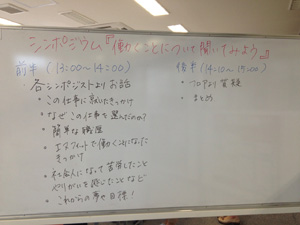 シンポジウム『働くことについて聞いてみよう』
前半 (13:00〜14:00)
各シンポジストよりお話
・この仕事に就いたきっかけ
・なぜこの仕事を選んだのか？
・簡単な職歴
・エスフィットで働くことになった
きっかけ
・社会人になって苦労したこと
やりがいを感じたことなど
・これからの夢や目標！
後半 (14:10〜15:00)
・フロアより質疑
・まとめ